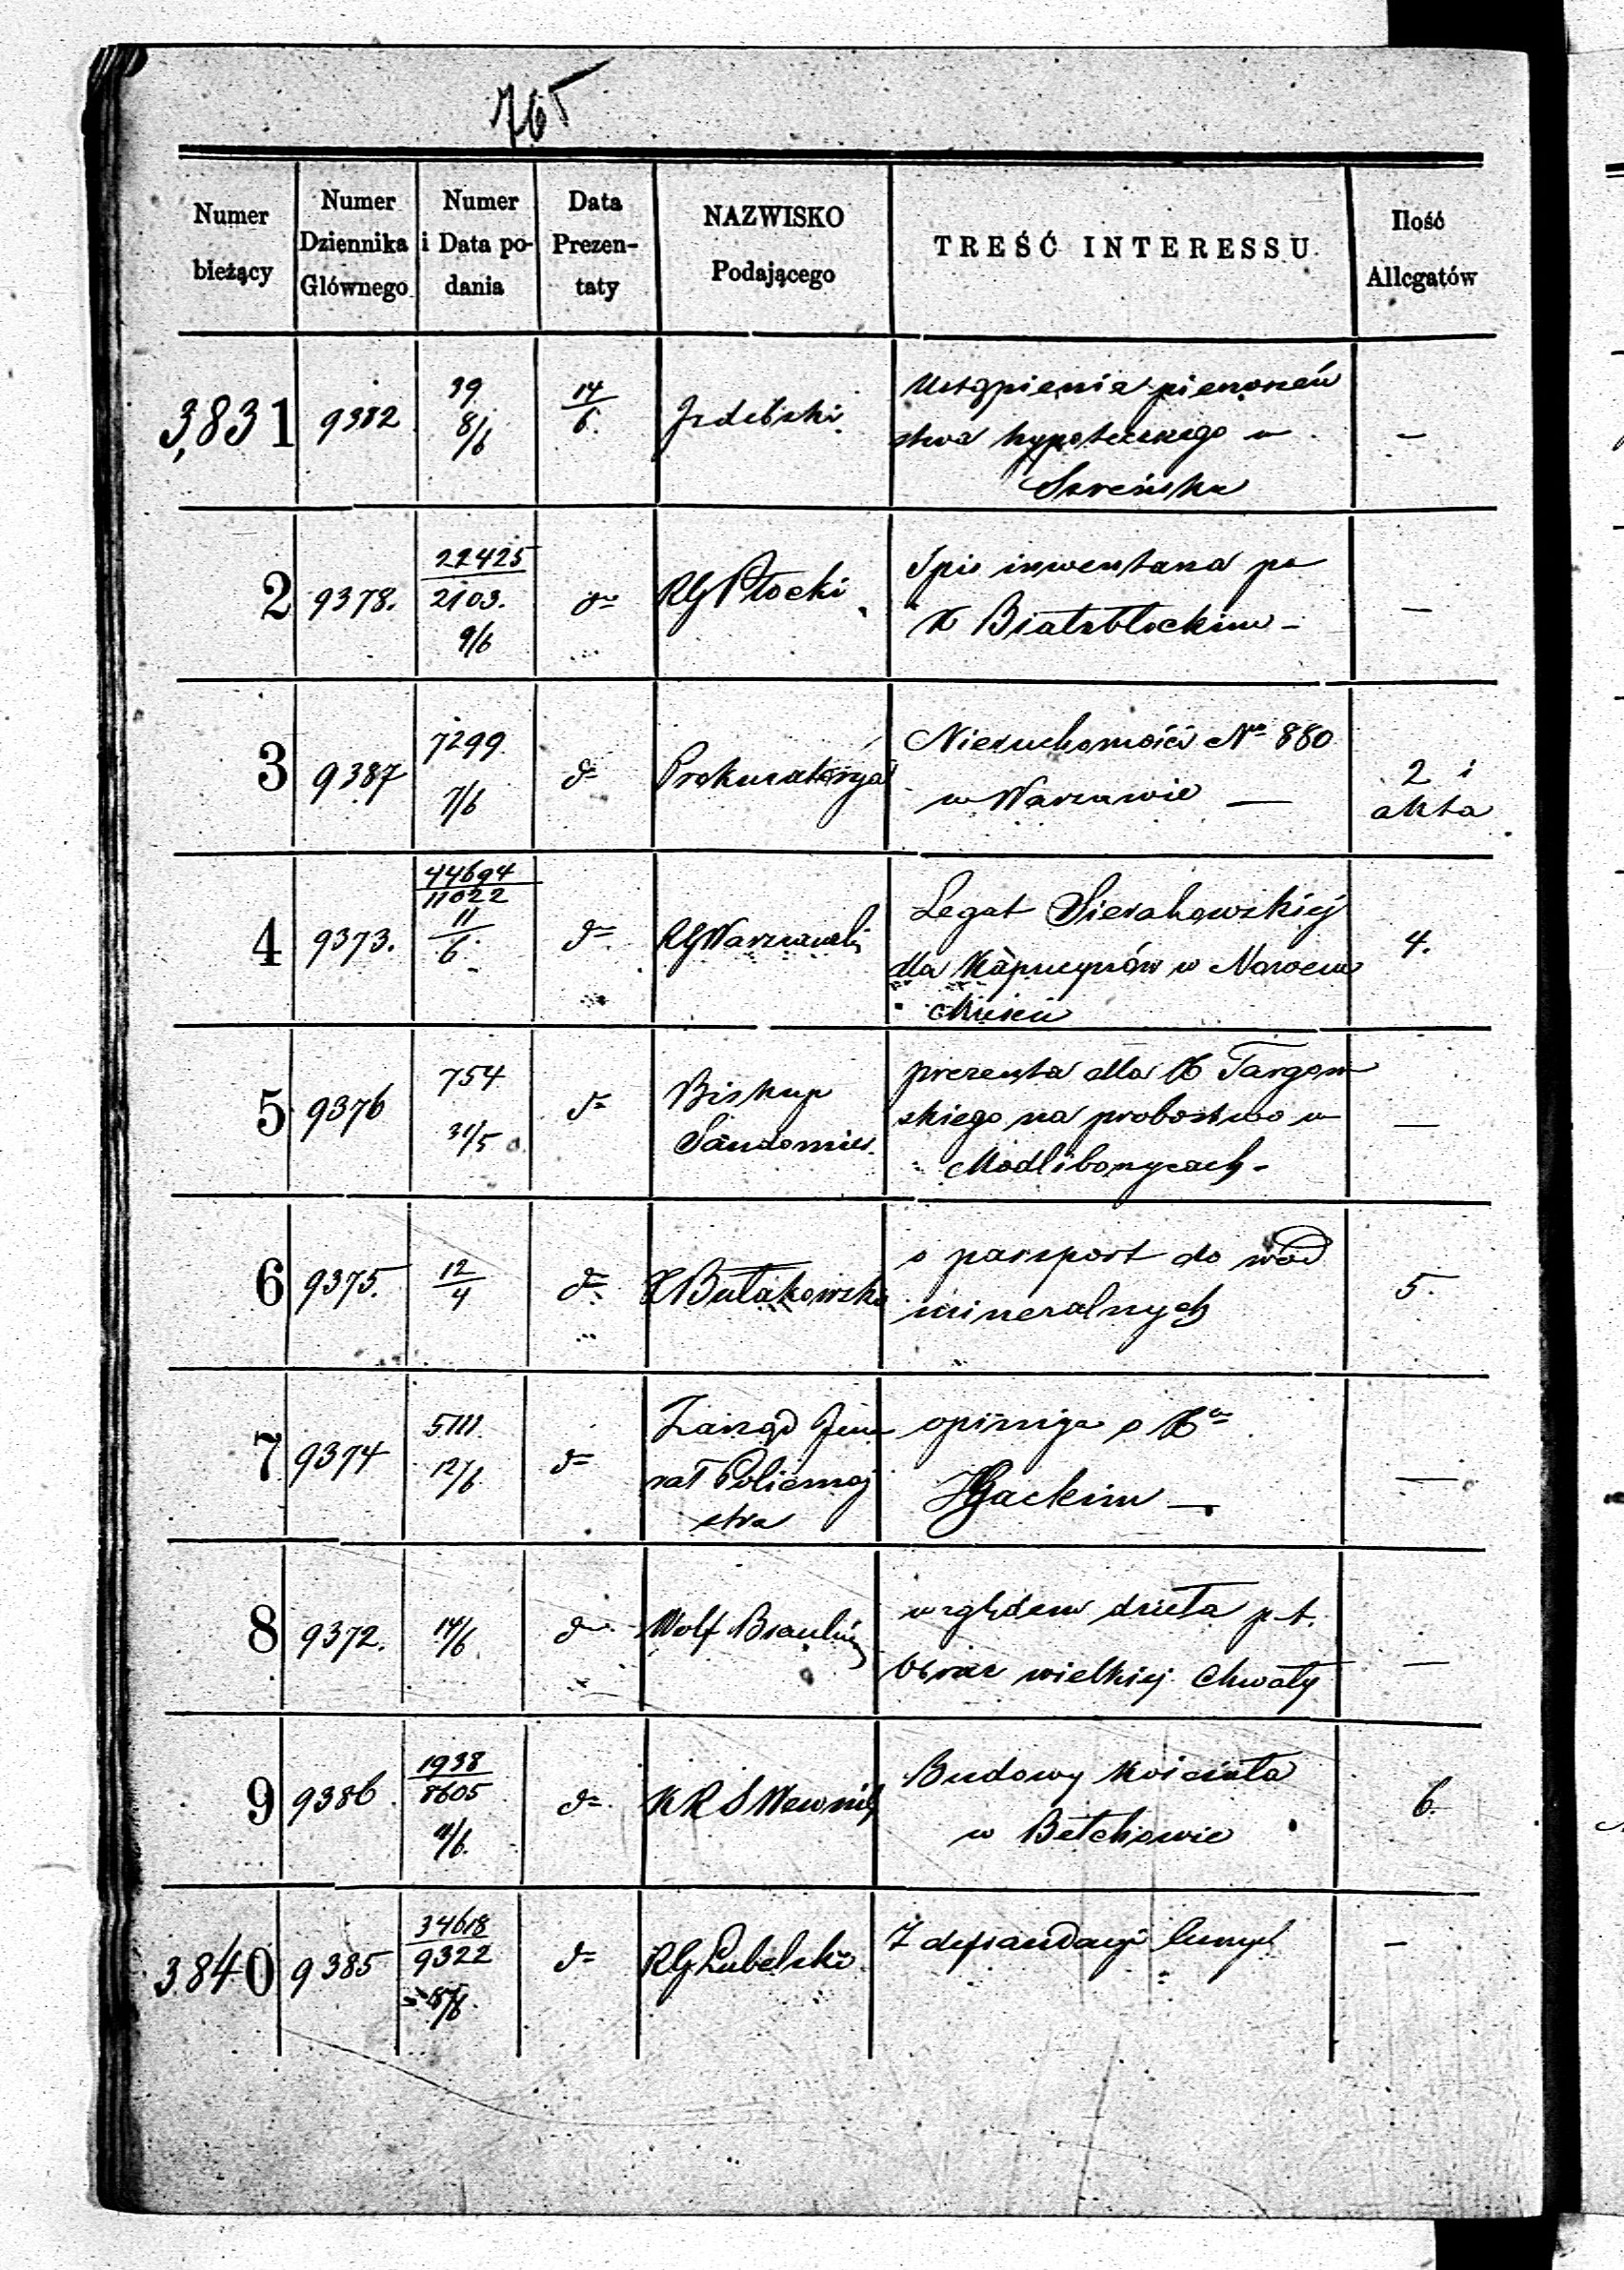 765
Numer bieżący | Numer Dziennika Głównego | Numer i Data podania | Data Prezentaty | NAZWISKO Podającego | TREŚĆ INTERESSU | Ilość Allegatów
3,831 | 9382 | 39 8/6 | 14/6. | Izdebski | Ustąpienia pierwszeń
stwa hypotecznego w | —
Szreńsku
2 | 9378. | 22425/2103. 9/6 | dto | RG Płocki | Spis inwentarza po
X Białobłockim – | —
3 | 9387 | 7299 7/6 | dto | Prokuratorya | Nieruchomości No 880
w Warszawie — | 2 i
akta
4 | 9373. | 44694/11022 11/6. | dto | RG Warszawski | Legat Sierakowskiej
dla Kapucynów w Nowem | 4.
Mieście
5 | 9376 | 754 31/5 | dto | Biskup
Sandomier. | prezenta dla X Targow
skiego na probostwo w | —
Modliborzycach –
6 | 9375. | 12/4 | dto | X Bułakowski | o paszport do wód
mineralnych | 5.
7 | 9374 | 5111. 12/6 | dto | Zarząd Jene
rał Policmaj
stra | opinija o Xu
Gackim — | —
8 | 9372. | 14/6. | dto | Wolf | względem dzieła p.t.
Obraz wielkiej Chwały | —
9 | 9386. | 1938/8605 11/6. | dto | KRSWewnęt | Budowy Kościoła
w Bełchowie | 6.
3840 | 9385 | 34618/9322 8/6. | dto | RG Lubelski | Z defraudacyi | –